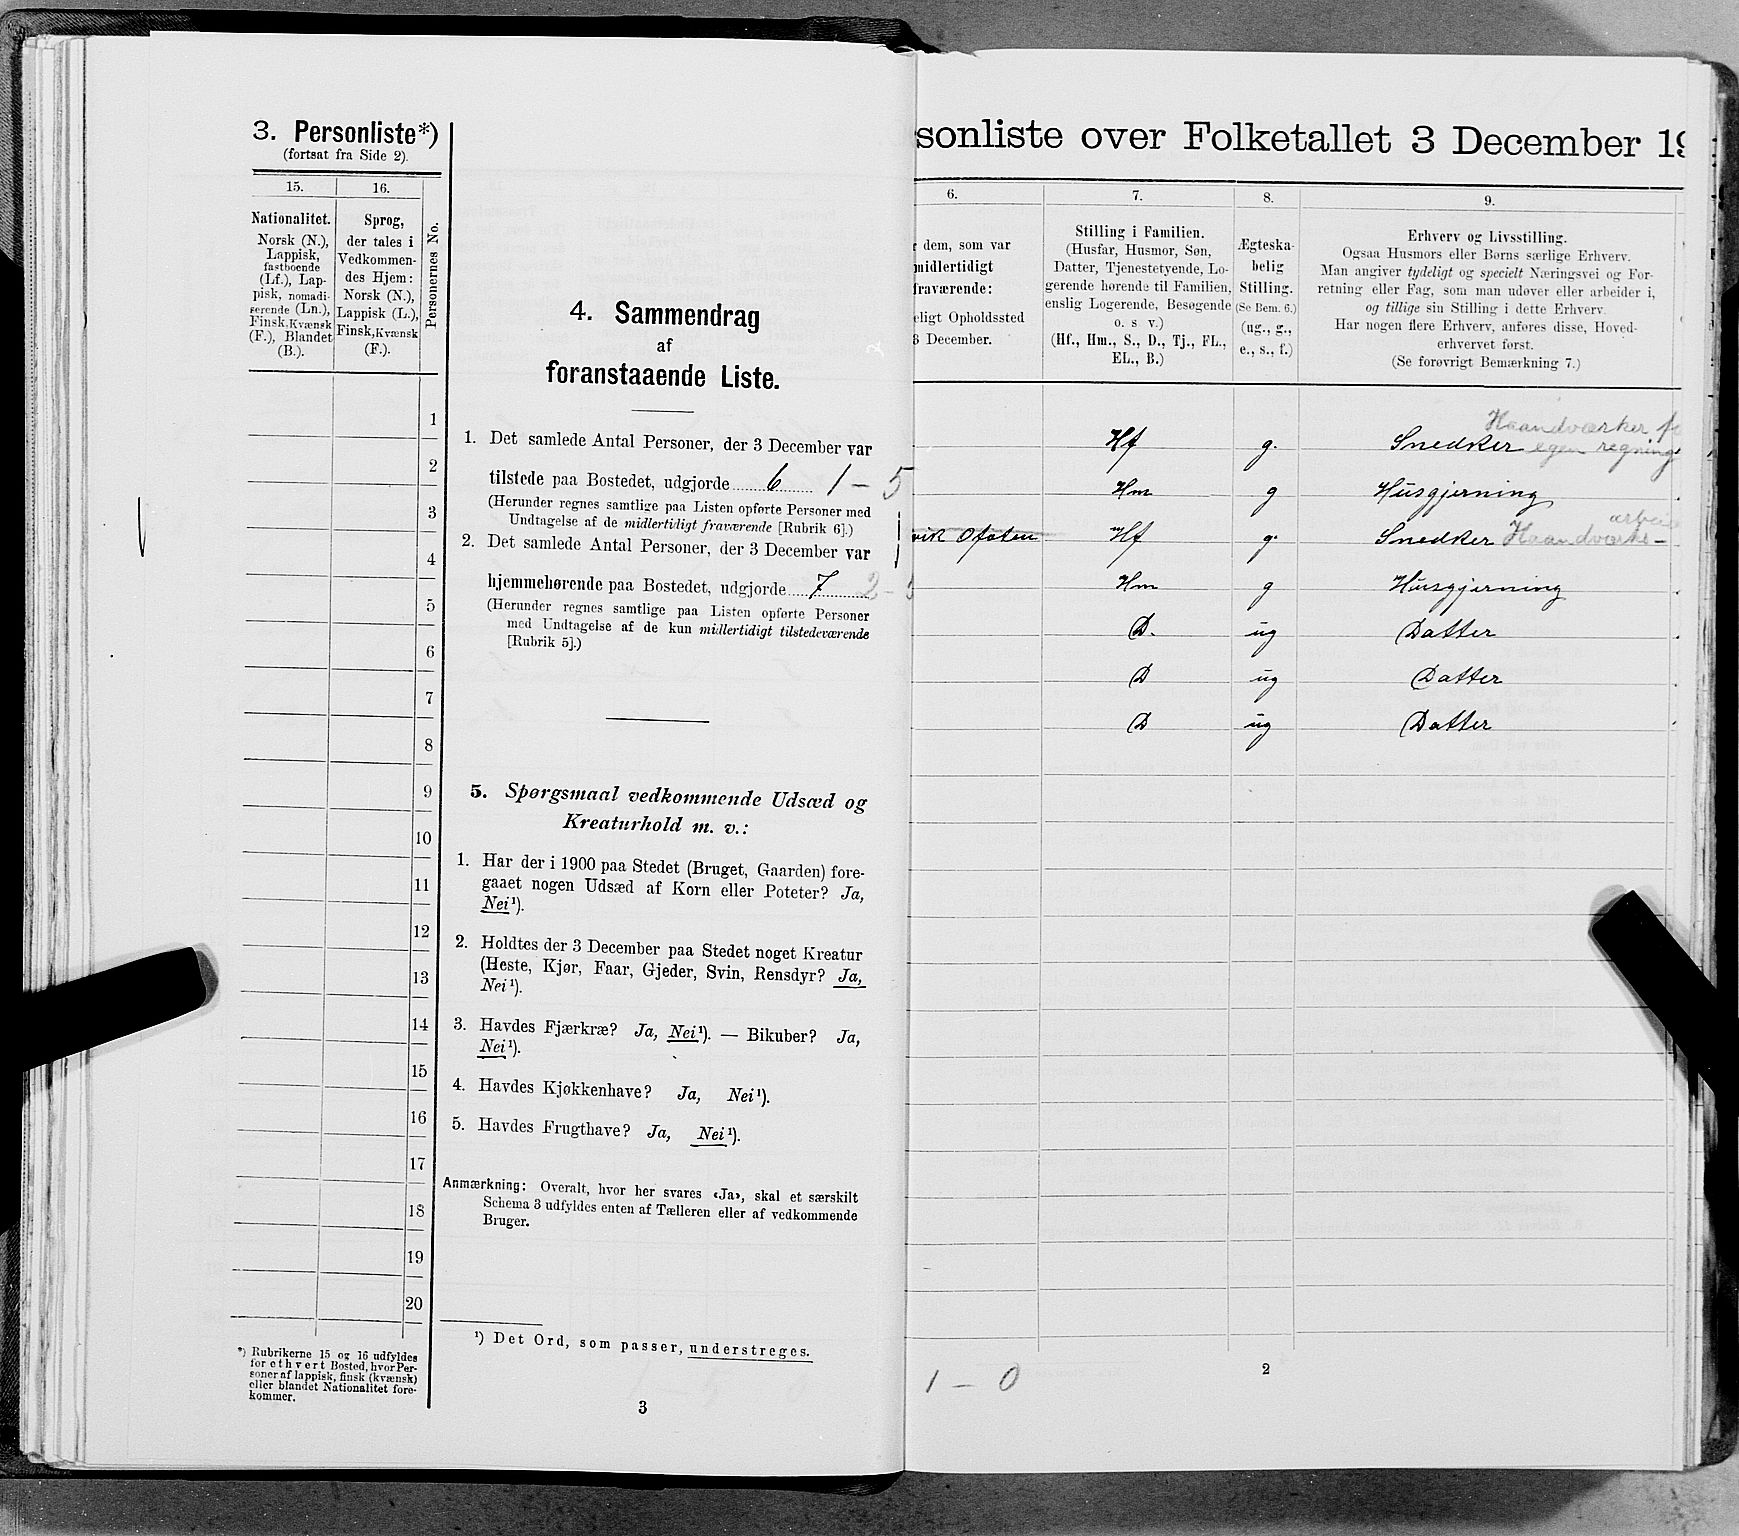 3. Personliste*)
(fortsat fra Side 2).
15.
Nationalitet.
Norsk (N.),
Lappisk,
fastboende
(Lf.), Lap-
pisk, nomadi-
serende (Ln.),
Finsk, Kvænsk
(F.), Blandet
(B.).
16.
Sprog,
der tales i
Vedkommen-
des Hjem:
Norsk (N.),
Lappisk (L.),
Finsk, Kvænsk
(F.).
Personernes No.
1
2
3
4
5
6
7
8
9
10
11
12
13
14
15
16
17
18
19
20
*) Rubrikerne 15 og 16 udfyldes
for ethvert Bosted, hvor Per-
soner af lappisk, finsk (kvænsk)
eller blandet Nationalitet fore-
kommer.
4. Sammendrag
af
foranstaaende Liste.
1. Det samlede Antal Personer, der 3 December var
tilstede paa Bostedet, udgjorde 6 1 – 5
(Herunder regnes samtlige paa Listen opførte Personer med
Undtagelse af de midlertidigt fraværende [Rubrik 6].)
2. Det samlede Antal Personer, der 3 December var
hjemmehørende paa Bostedet, udgjorde 7 2 –
(Herunder regnes samtlige paa Listen opførte Personer
med Undtagelse af de kun midlertidigt tilstedeværende
[Rubrik 5].)
5. Spørgsmaal vedkommende Udsæd og
Kreaturhold m. v.:
1. Har der i 1900 paa Stedet (Bruget, Gaarden) fore-
gaaet nogen Udsæd af Korn eller Poteter? Ja,
Nei¹).
2. Holdtes der 3 December paa Stedet noget Kreatur
(Heste, Kjør, Faar, Gjeder, Svin, Rensdyr? Ja,
Nei¹).
3. Havdes Fjærkræ? Ja, Nei¹). — Bikuber? Ja,
Nei¹).
4. Havdes Kjøkkenhave? Ja, Nei¹).
5. Havdes Frugthave? Ja, Nei¹).
Anmærkning: Overalt, hvor her svares «Ja», skal et særskilt
Schema 3 udfyldes enten af Tælleren eller af vedkommende
Bruger.
¹) Det Ord, som passer, understreges.
3
sonliste over Folketallet 3 December 19
6.
dem, som var
midlertidigt
fraværende:
eligt Opholdssted
3 December.
7.
Stilling i Familien.
(Husfar, Husmor, Søn,
Datter, Tjenestetyende, Lo-
gerende hørende til Familien,
enslig Logerende, Besøgende
o. s v.)
(Hf., Hm., S., D., Tj., FL.,
EL., B.)
8.
Ægteska-
belig
Stilling.
(Se Bem. 6.)
(ug., g.,
e., s., f.)
9.
Erhverv og Livsstilling.
Ogsaa Husmors eller Børns særlige Erhverv.
Man angiver tydeligt og specielt Næringsvei og For-
retning eller Fag, som man udøver eller arbeider i,
og tillige sin Stilling i dette Erhverv.
Har nogen flere Erhverv, anføres disse, Hoved-
erhvervet først.
(Se forøvrigt Bemærkning 7.)
Haandværker f
Hf g. Snedker egen regning
Hm g Husgjerning
arbei
vik Ofoten Hf g. Snedker Haandværks-
Hm g Husgjerning
D. ug Datter
D ug Datter
D ug Datter
1 – 0
2